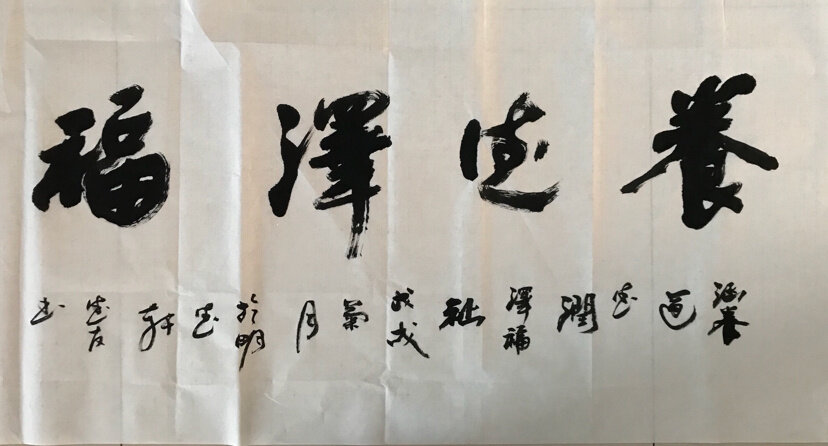 養德澤福
涵養道德潤澤福祉戊戌菊月於明德軒德友書